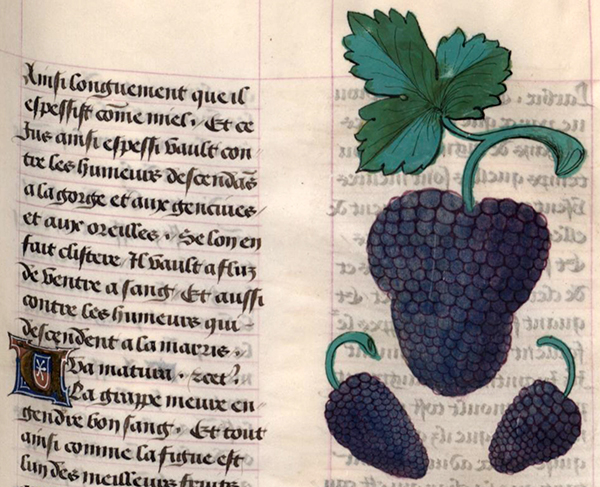 Ainsi longuement que il
espessist cōme miel. Et ce
Jus ainsi espessi vault con
tre les humeurs descendās
a la gorge et aux gencives
et aux oreilles. Se lon en
fait clistere Il vault a fluz
de ventre a sang Et aussi
contre les humeurs qui
descendent a la marris.
Uva matura. &cet.
La grappe meure en
gendre bon sang. Et tout
ainsi comme la figue est
lun des meilleurs fruits